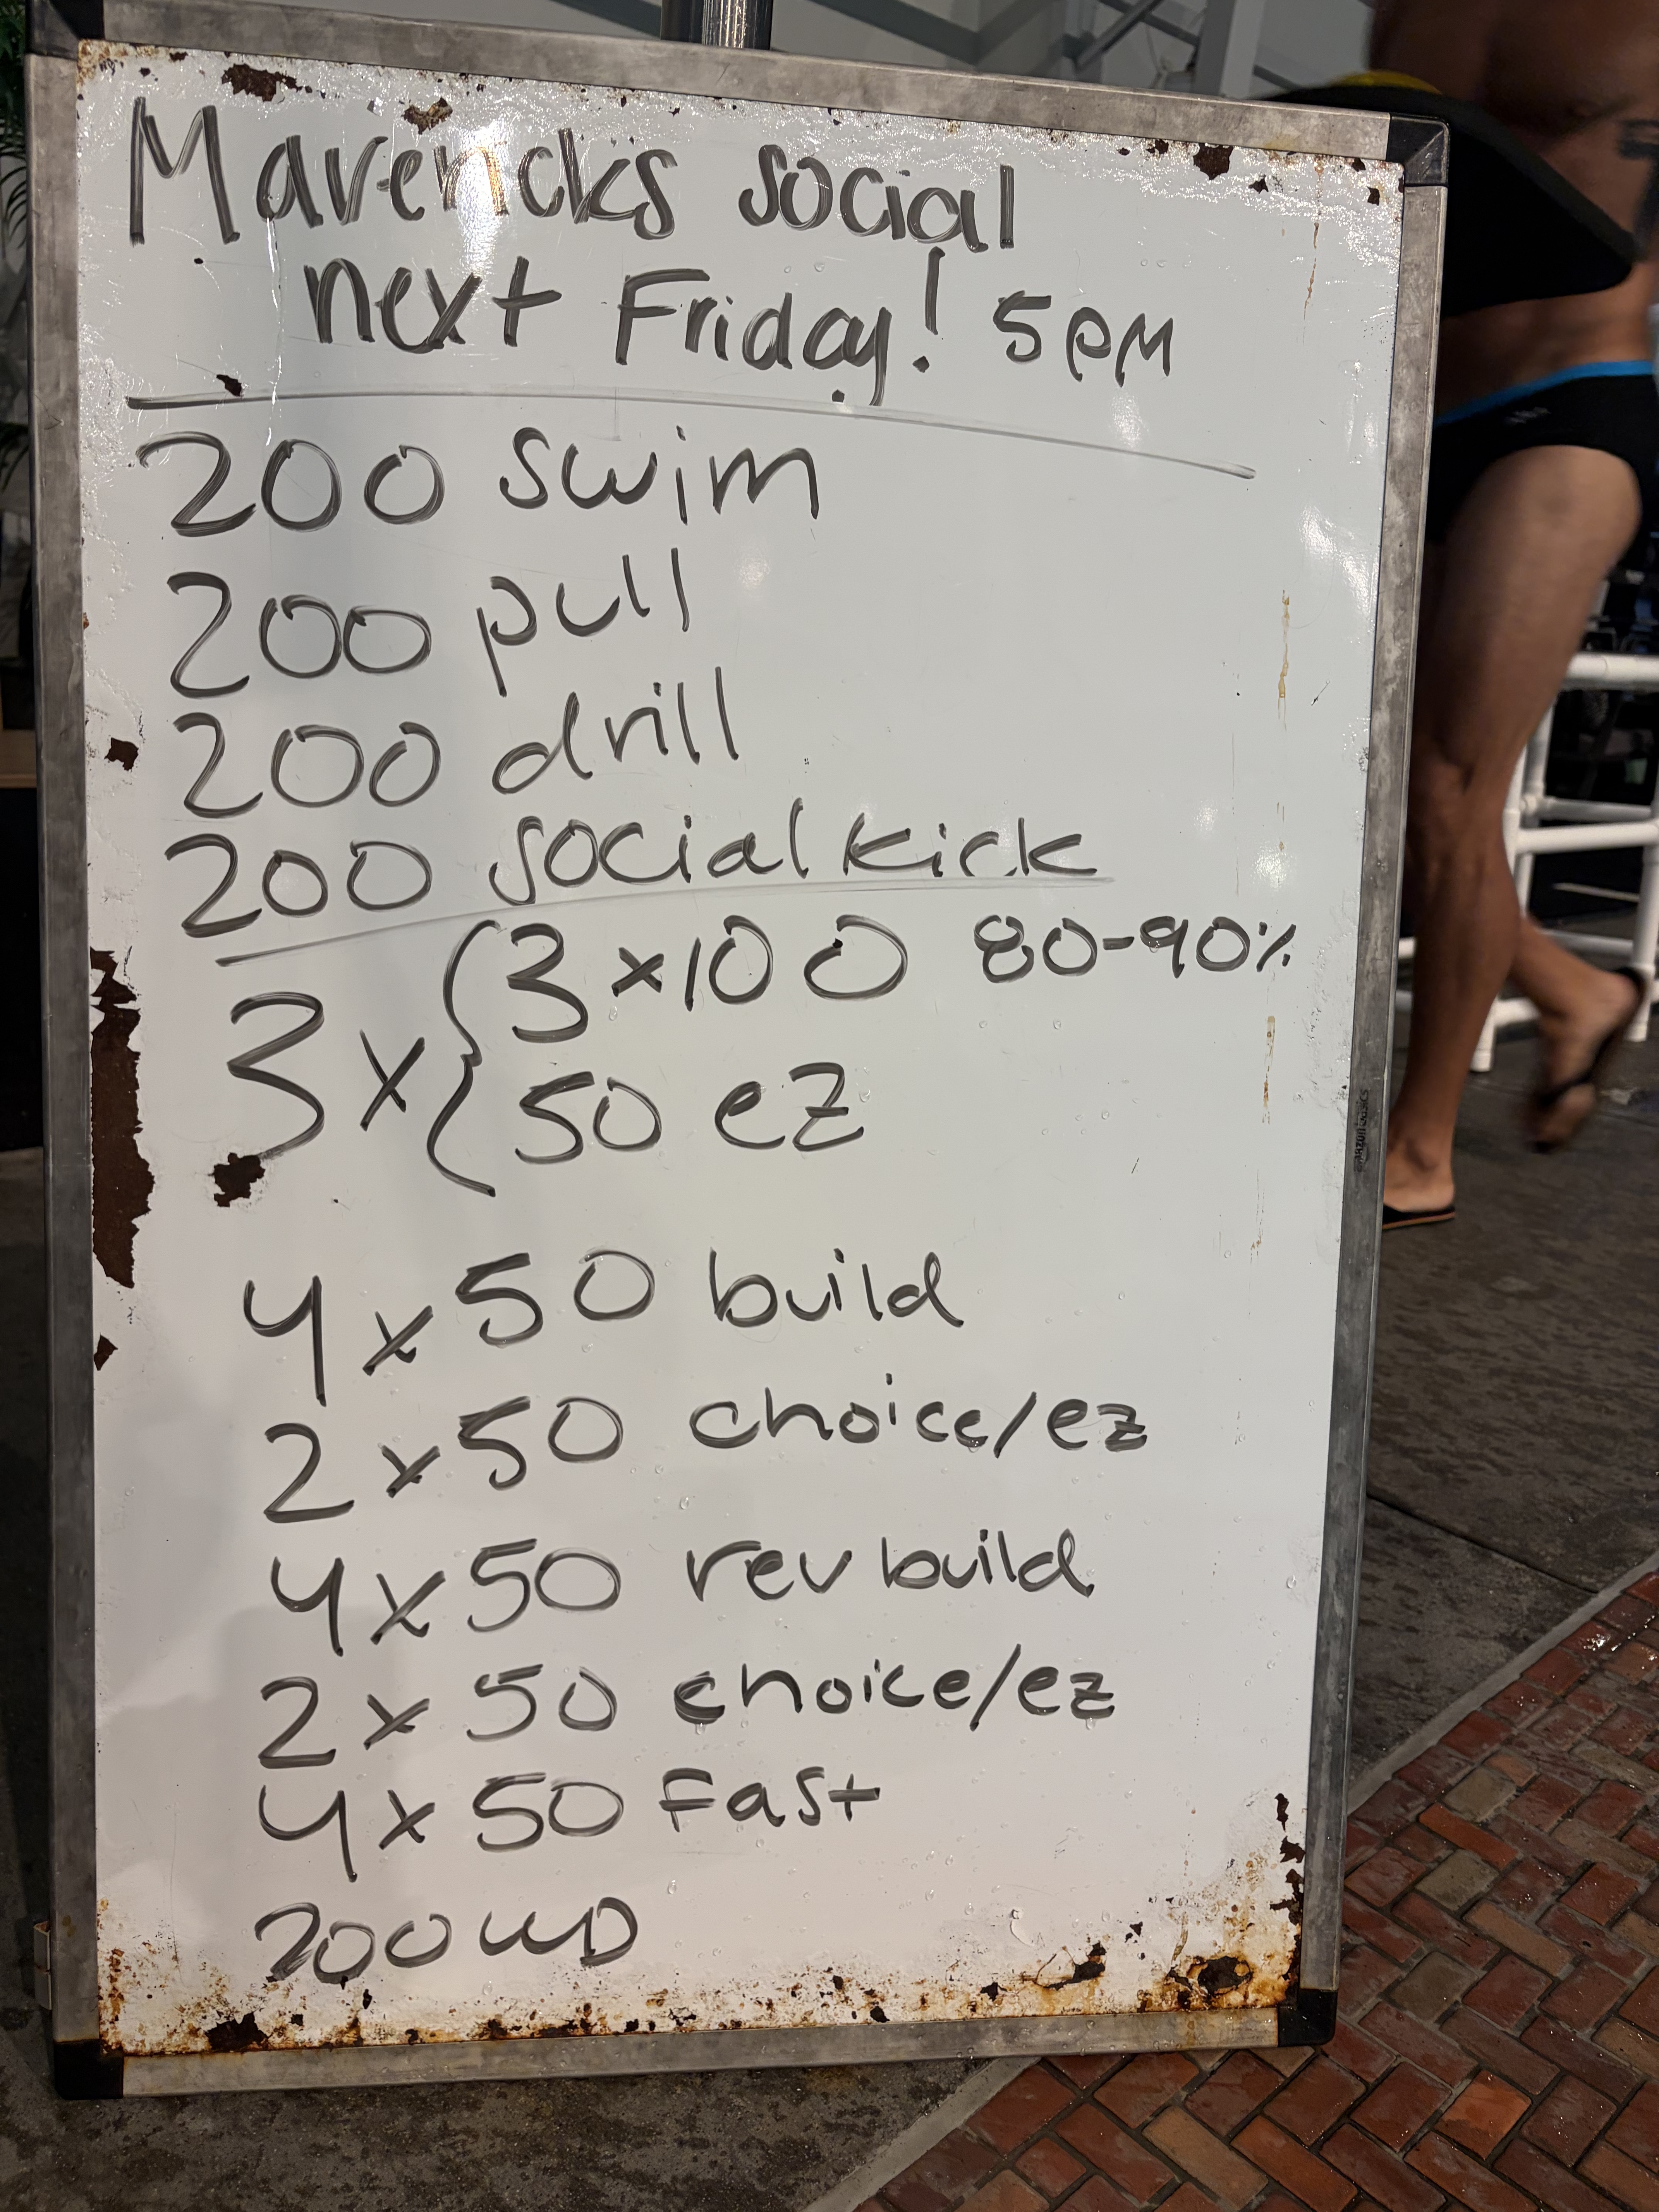 Mavericks social
next Friday! 5pm
200 swim
200 pull
200 drill
200 social kick
3 x { 3 x 100 80-90%
50 ez
4 x 50 build
2 x 50 choice/ez
4 x 50 rev build
2 x 50 choice/ez
4 x 50 Fast
200 WD
amazon basics